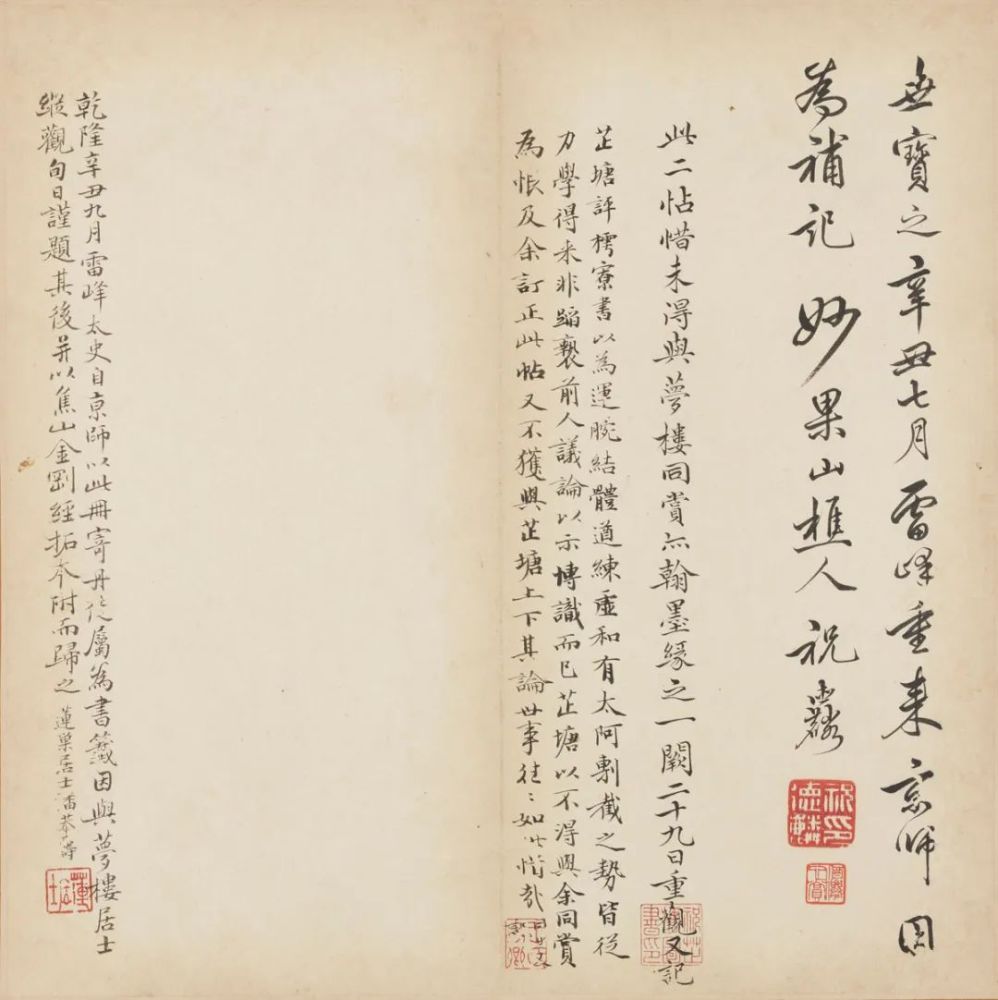 世寶之辛丑七月雷峰重来京师因
為補記 妙果山樵人祝德麟
此二帖惜未得與夢樓同賞亦翰墨緣之一闕二十九日重觀又記
芷塘評樗寮書以為運腕結體遒練虛和有太阿剸截之勢皆從
力學得来非蹈褻前人議論以示博識而已芷塘以不得與余同賞
為恨及余訂正此帖又不獲與芷塘上下其論世事往〻如此惜哉
乾隆辛丑九月雷峰太史自京師以此冊寄丹徒屬為書籤因與夢樓居士
縱觀旬日謹題其後并以焦山金剛經拓本附而歸之 蓮巢居士潘恭壽
祝印德麟